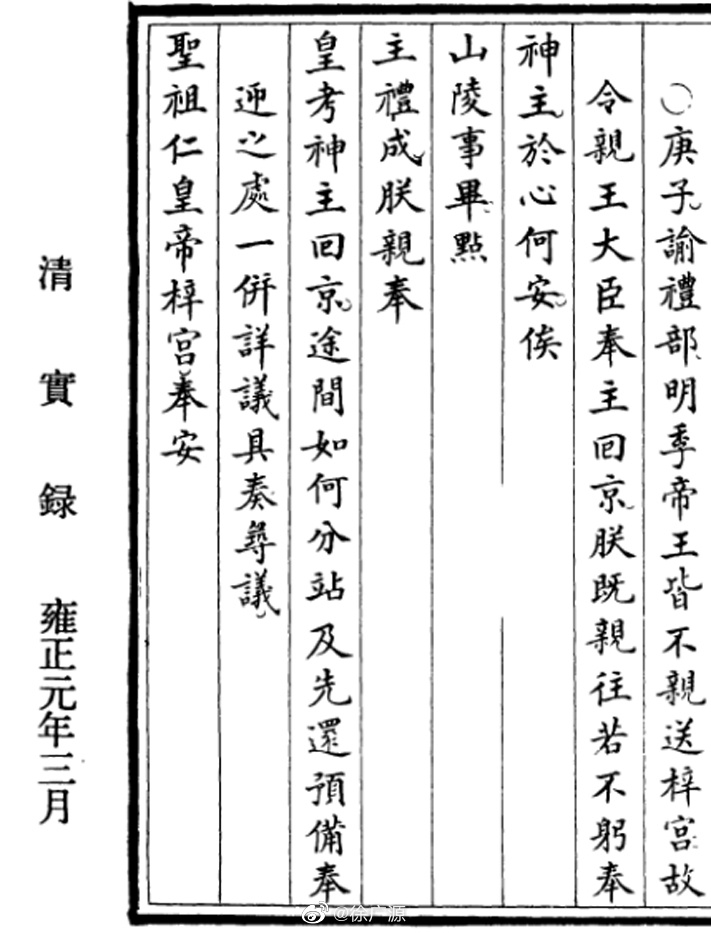 ○庚子諭禮部明季帝王皆不親送梓宮故
令親王大臣奉主回京朕既親往若不躬奉
神主於心何安俟
山陵事畢點
主禮成朕親奉
皇考神主回京途間如何分站及先還預備奉
迎之處一併詳議具奏尋議
聖祖仁皇帝梓宮奉安
清實録 雍正元年三月
@徐广源